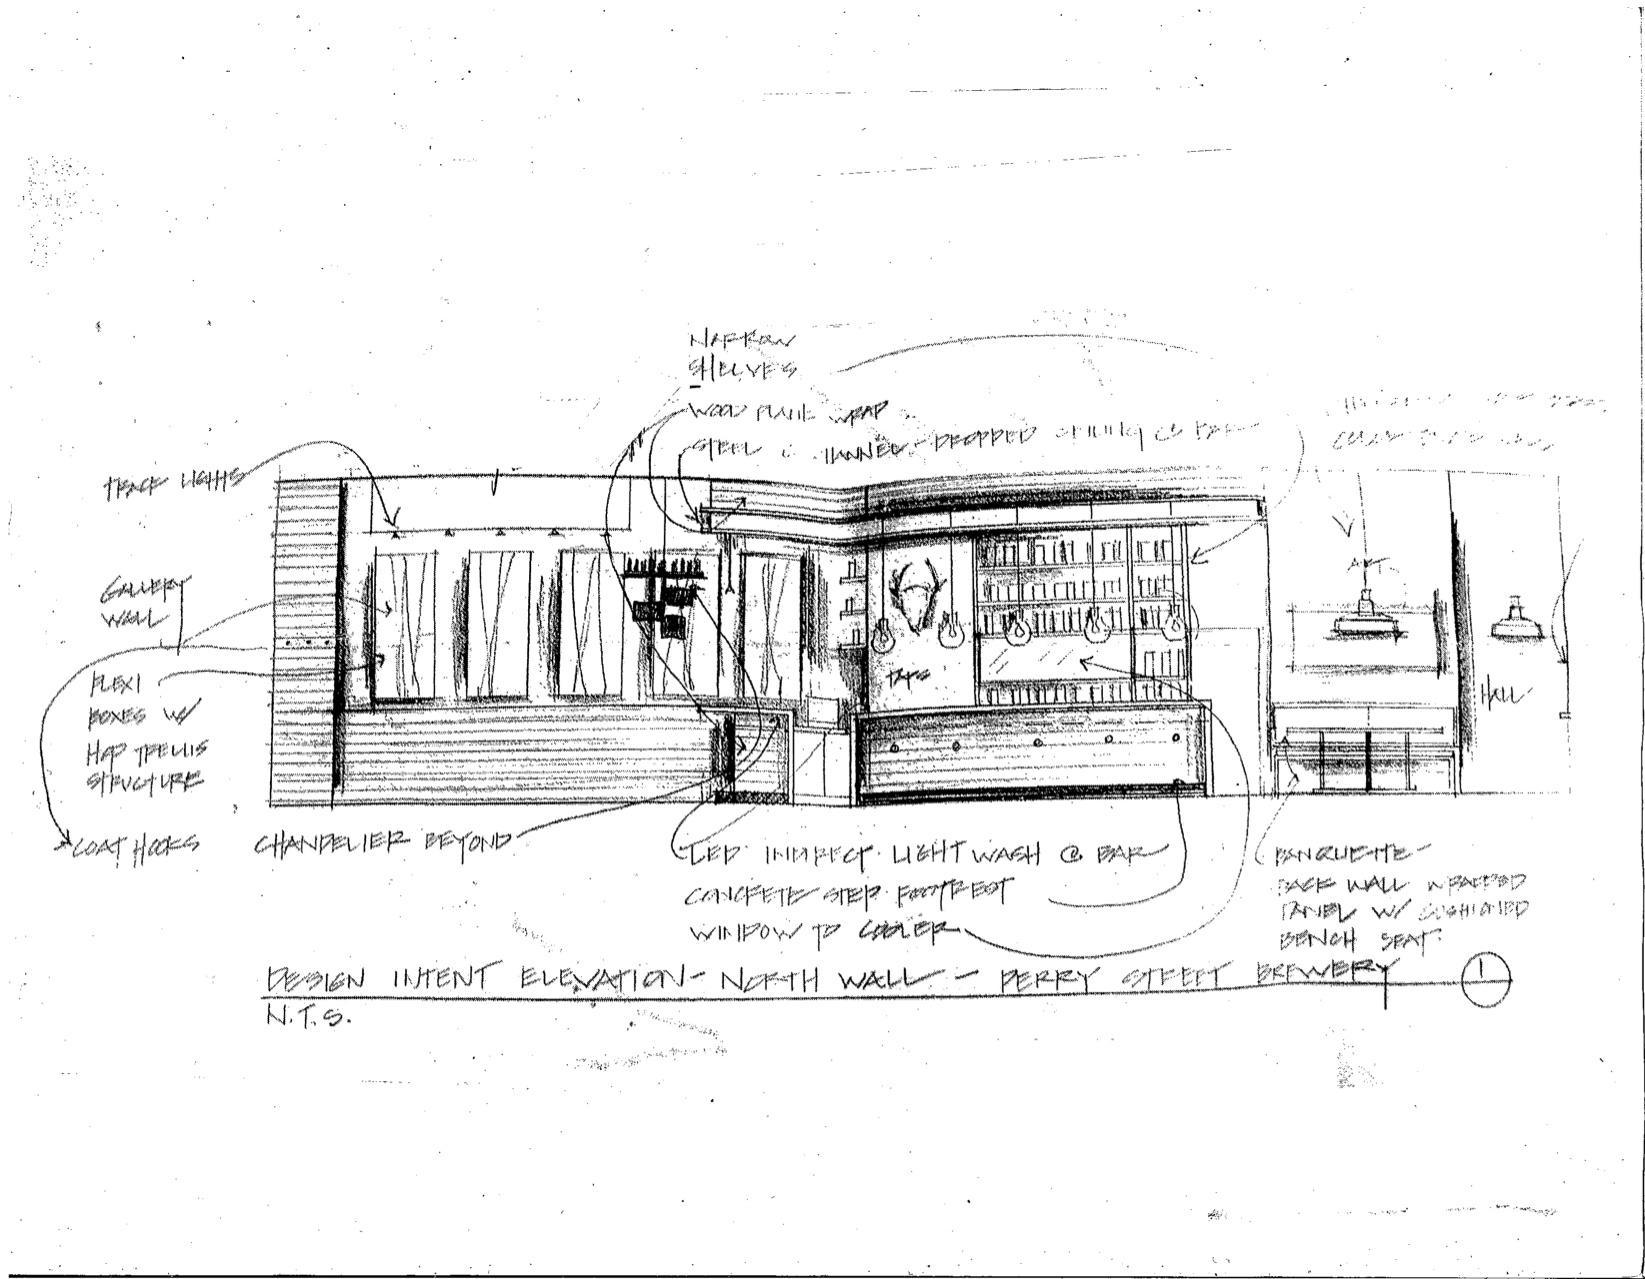 NARROW
SHELVES
WOOD PLANK WRAP
STEEL CHANNEL - DROPPED CEILING @ BAR
TRACK LIGHTS
GALLERY
WALL
FLEXI
BOXES W/
HOP TRELLIS
STRUCTURE
COAT HOOKS
CHANDELIER BEYOND
LED INDIRECT LIGHT WASH @ BAR
CONCRETE STEP FOOTREST
WINDOW TO COOLER
TAPS
ART
HALL
BANQUETTE-
BACK WALL WRAPPED
PANEL W/ CUSHIONED
BENCH SEAT.
DESIGN INTENT ELEVATION - NORTH WALL - PERRY STREET BREWERY
1
N.T.S.